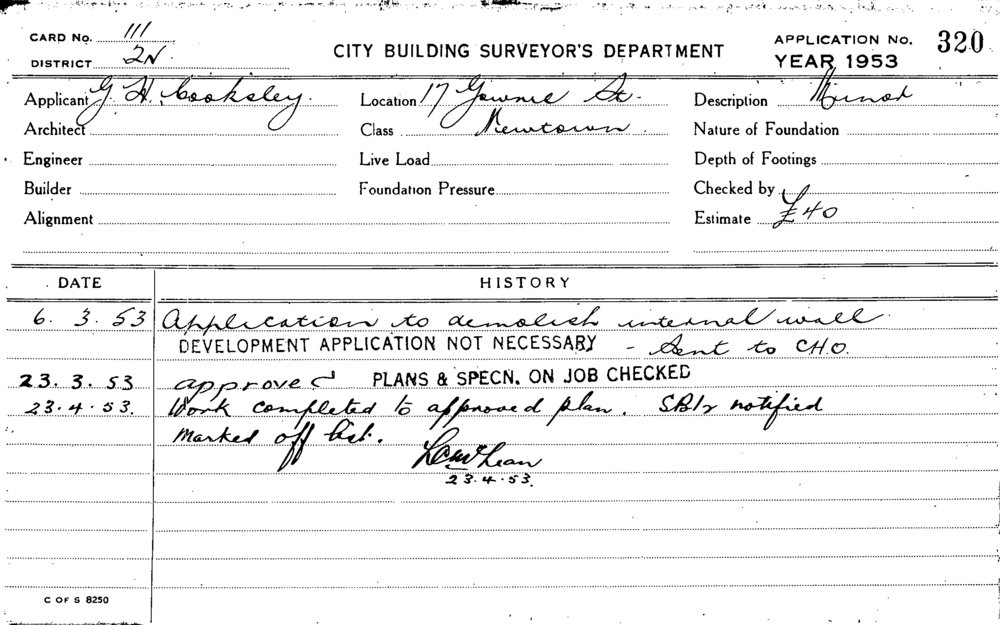 CARD No. 111
DISTRICT 2N.
CITY BUILDING SURVEYOR'S DEPARTMENT
APPLICATION No. 320
YEAR 1953
Applicant G. H. Cooksley.
Location 17 Gowrie St.
Description Minor
Architect
Class Newtown
Nature of Foundation
Engineer
Live Load
Depth of Footings
Builder
Foundation Pressure
Checked by
Alignment
Estimate £40
DATE
HISTORY
6. 3. 53 Application to demolish internal wall
DEVELOPMENT APPLICATION NOT NECESSARY - Sent to CHO.
23. 3. 53 approved PLANS & SPECN. ON JOB CHECKED
23. 4. 53. Work completed to approved plan. notified
marked off list.
23. 4. 53.
C OF S 8250